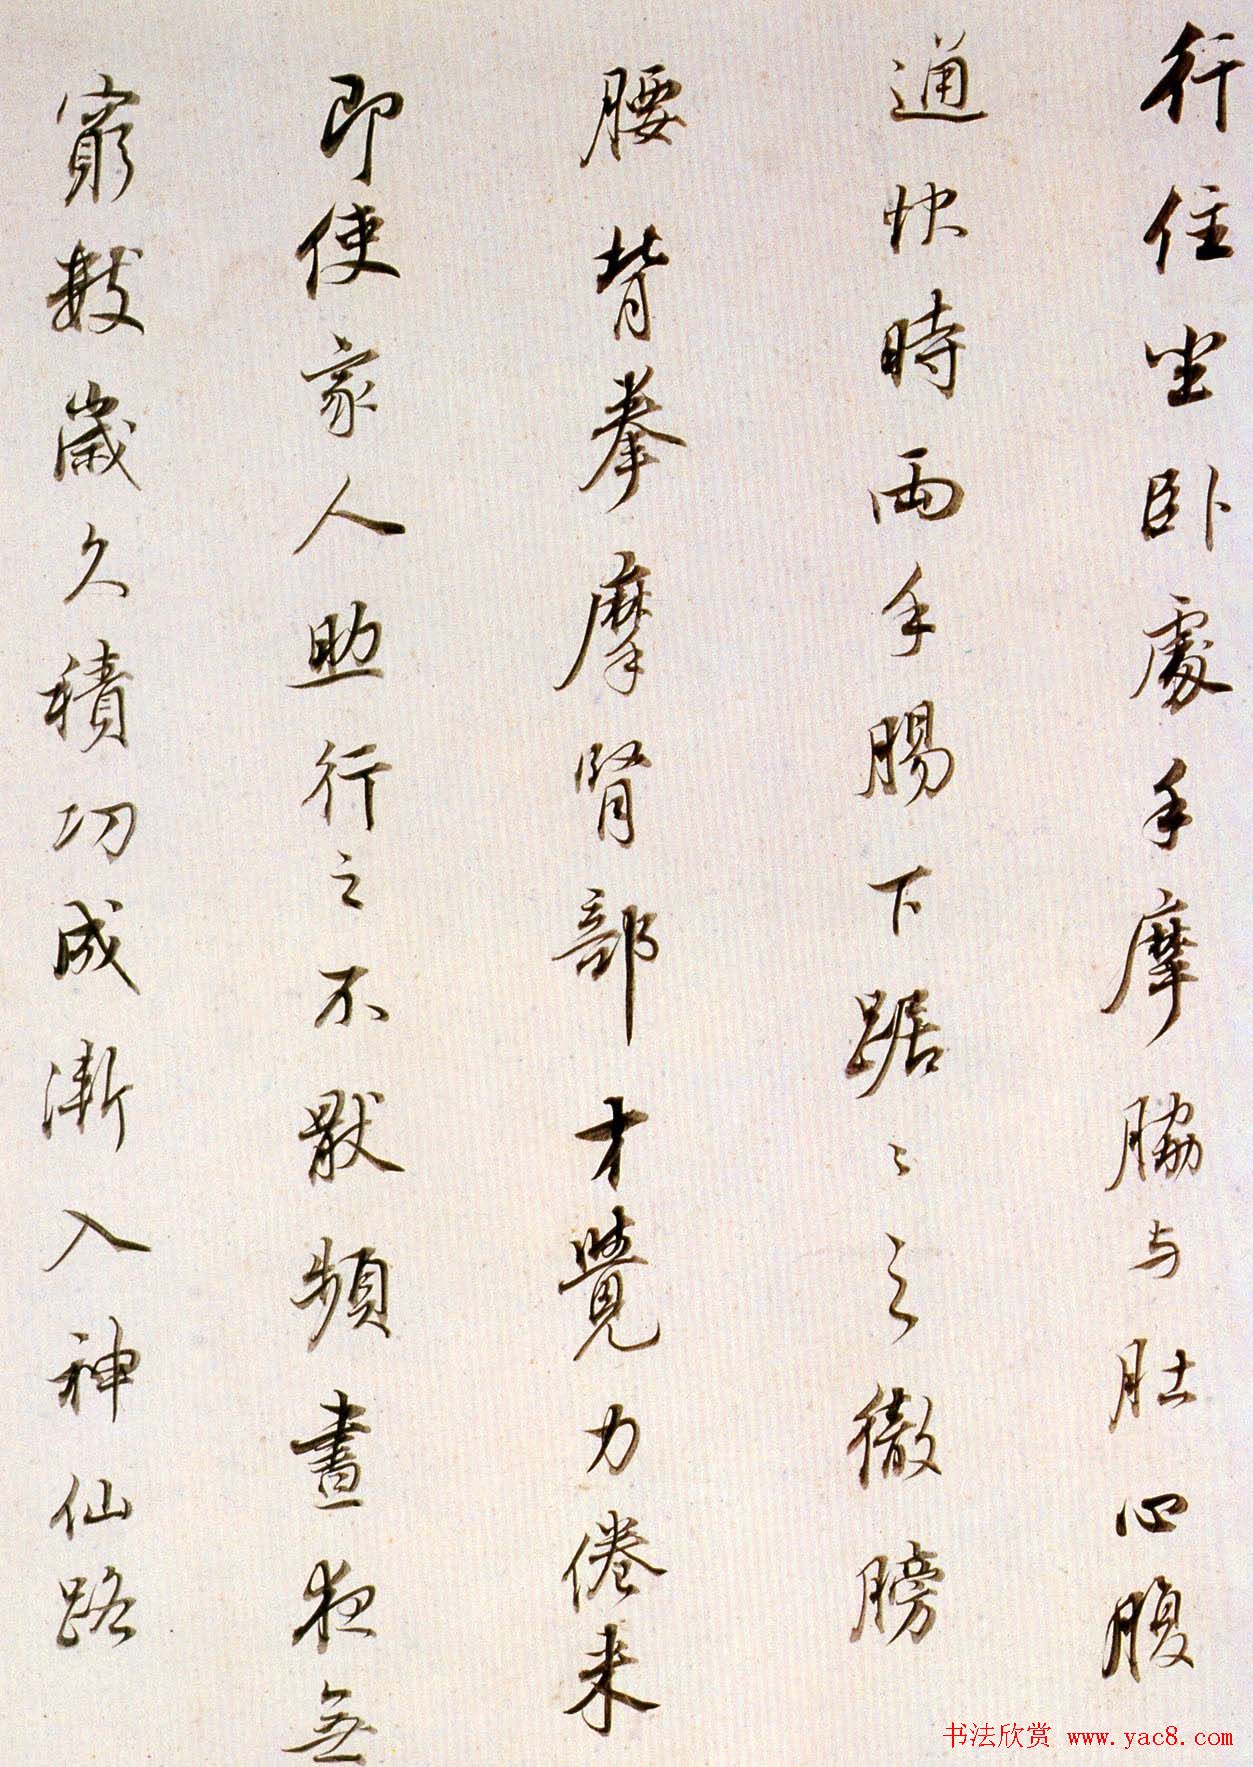 行住坐卧處手摩脇与肚心腹
通快時兩手腸下踞〻之徹膀
腰背拳摩腎部才覺力倦来
即使家人助行之不厭頻晝夜無
窮數歲久積功成漸入神仙路
书法欣赏 www.yac8.com